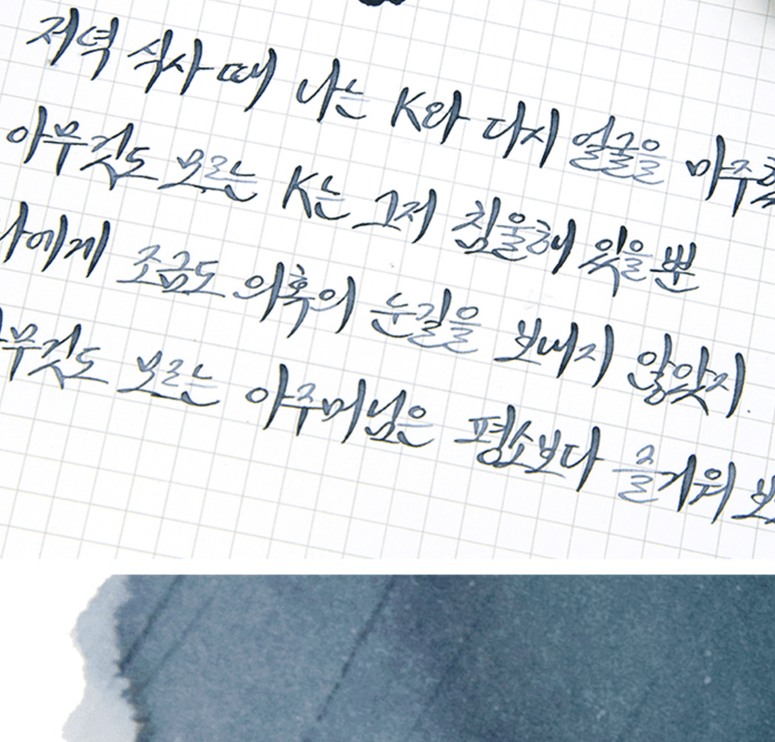 저녁 식사 때 나는 K와 다시 얼굴을 마주
아무것도 모르는 K는 그저 침울해 있을 뿐
나에게 조금도 의혹의 눈길을 보내지 않았지.
아무것도 모르는 아주머님은 평소보다 즐거워 보